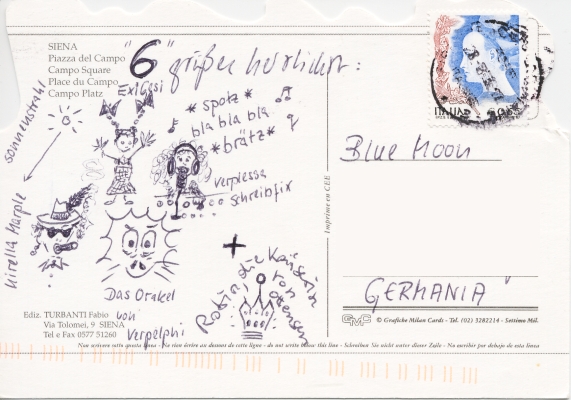 SIENA
Piazza del Campo
Campo Square
Place du Campo
Campo Platz
"6" grüßen herzlichst:
Exlcesi
*spotz*
bla bla bla
*brätz*
sonnenstrahl
Mirella Harple
verpressa
schreibfix
Das Orakel
von
Verpelphi
+
Robin, die Kaiserin
von
Ottensen
Blue Moon
GERMANIA
ITALIA
Imprime en CEE
Ediz. TURBANTI Fabio
Via Tolomei, 9 SIENA
Tel e Fax 0577 51260
GMC © Grafiche Milan Cards - Tel. (02) 3282214 - Settimo Mil.
Non scrivere sotto questa linea - Ne rien écrire au dessous de cette ligne - do not write below this line - Schreiben Sie nicht unter dieser Zeile - No escribir por debajo de esta linea